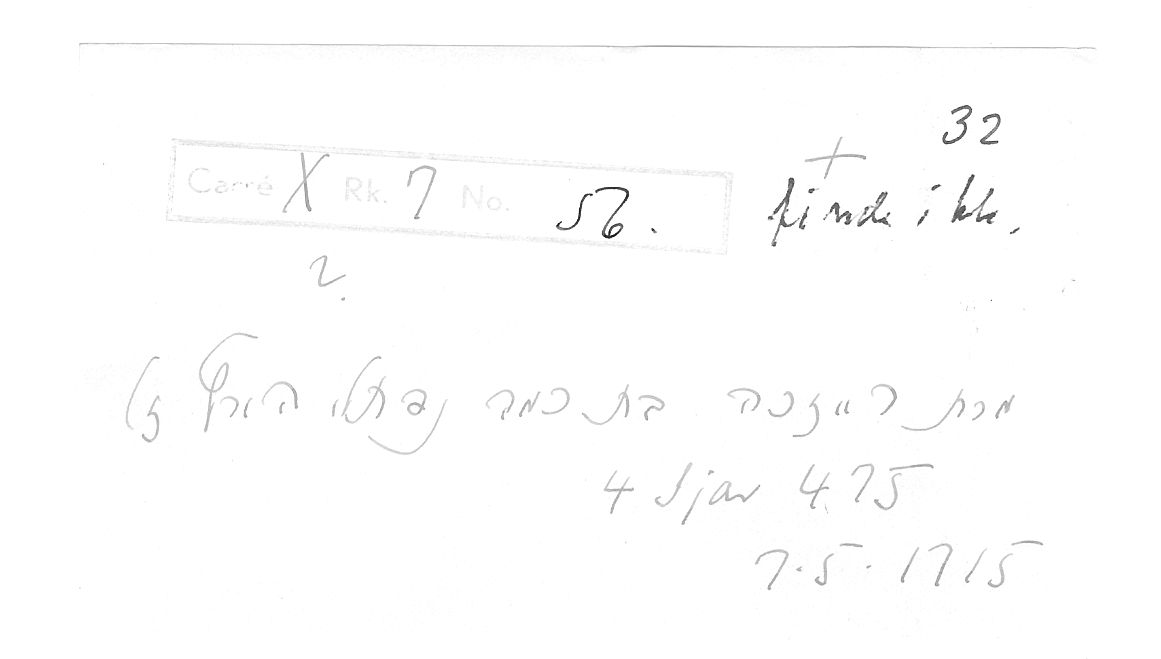 32
Carré X Rk. 7 No. 56.
+
findes ikke.
2.
מרת רייזכה בת כמה נפתלי הירץ זל
4 Ijar 475
7.5.1715